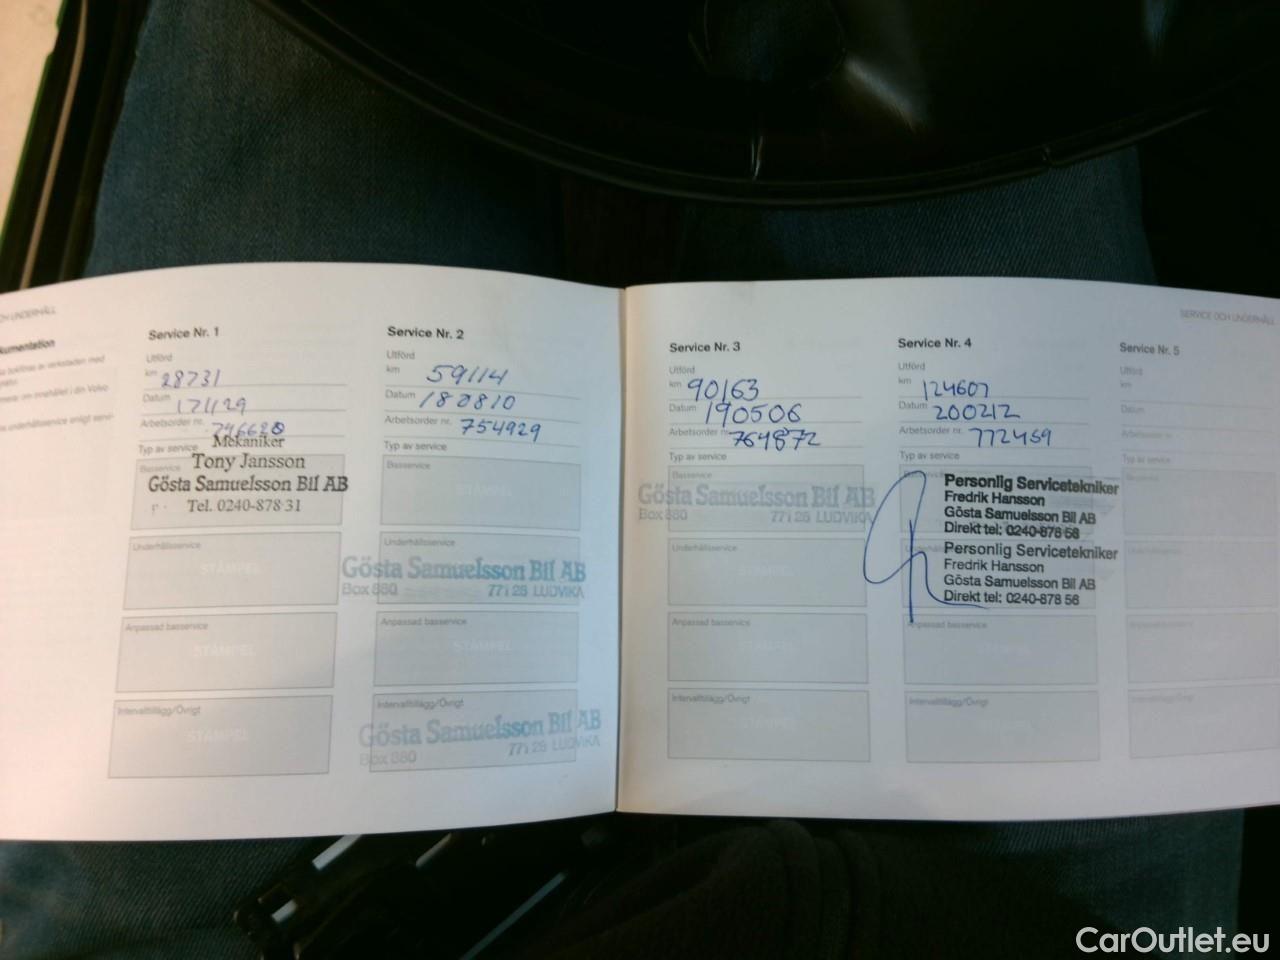 SERVICE OCH UNDERHÅLL
Service Nr. 1
Utförd
km 28731
Datum 171129
Arbetsorder nr. 746628
Typ av service
Basservice
Mekaniker
Tony Jansson
Gösta Samuelsson Bil AB
Tel. 0240-878 31
Underhållsservice
STÄMPEL
Anpassad basservice
STÄMPEL
Intervalltillägg/Övrigt
STÄMPEL
Service Nr. 2
Utförd
km 59114
Datum 180810
Arbetsorder nr. 754929
Typ av service
Basservice
STÄMPEL
Underhållsservice
Gösta Samuelsson Bil AB
Box 880 771 28 LUDVIKA
Anpassad basservice
STÄMPEL
Intervalltillägg/Övrigt
Gösta Samuelsson Bil AB
Box 880 771 28 LUDVIKA
Service Nr. 3
Utförd
km 90163
Datum 190506
Arbetsorder nr. 764872
Typ av service
Basservice
Gösta Samuelsson Bil AB
Box 880 771 28 LUDVIKA
Underhållsservice
Anpassad basservice
Intervalltillägg/Övrigt
Service Nr. 4
Utförd
km 124607
Datum 200212
Arbetsorder nr. 772459
Typ av service
Personlig Servicetekniker
Fredrik Hansson
Gösta Samuelsson Bil AB
Direkt tel: 0240-878 56
Personlig Servicetekniker
Fredrik Hansson
Gösta Samuelsson Bil AB
Direkt tel: 0240-878 56
Anpassad basservice
Intervalltillägg/Övrigt
Service Nr. 5
Utförd
km
Datum
Arbetsorder nr.
Typ av service
CarOutlet.eu